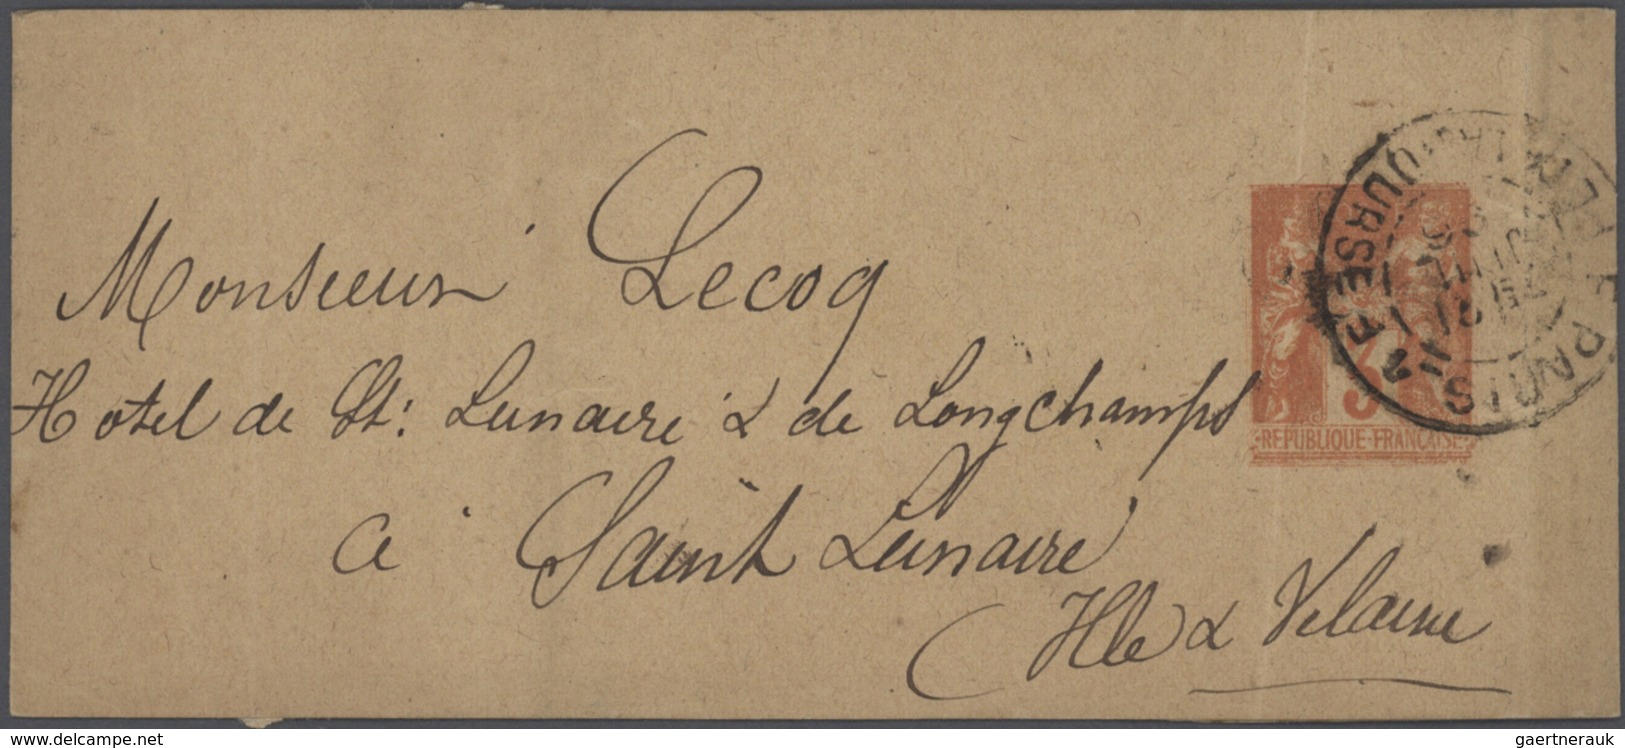 Monsieur Lecoq
Hotel de St: Lunaire & de Longchamps
à Saint Lunaire
Ille & Vilaine
3
REPUBLIQUE·FRANÇAISE
PARIS
www.delcampe.net
gaertnerauk